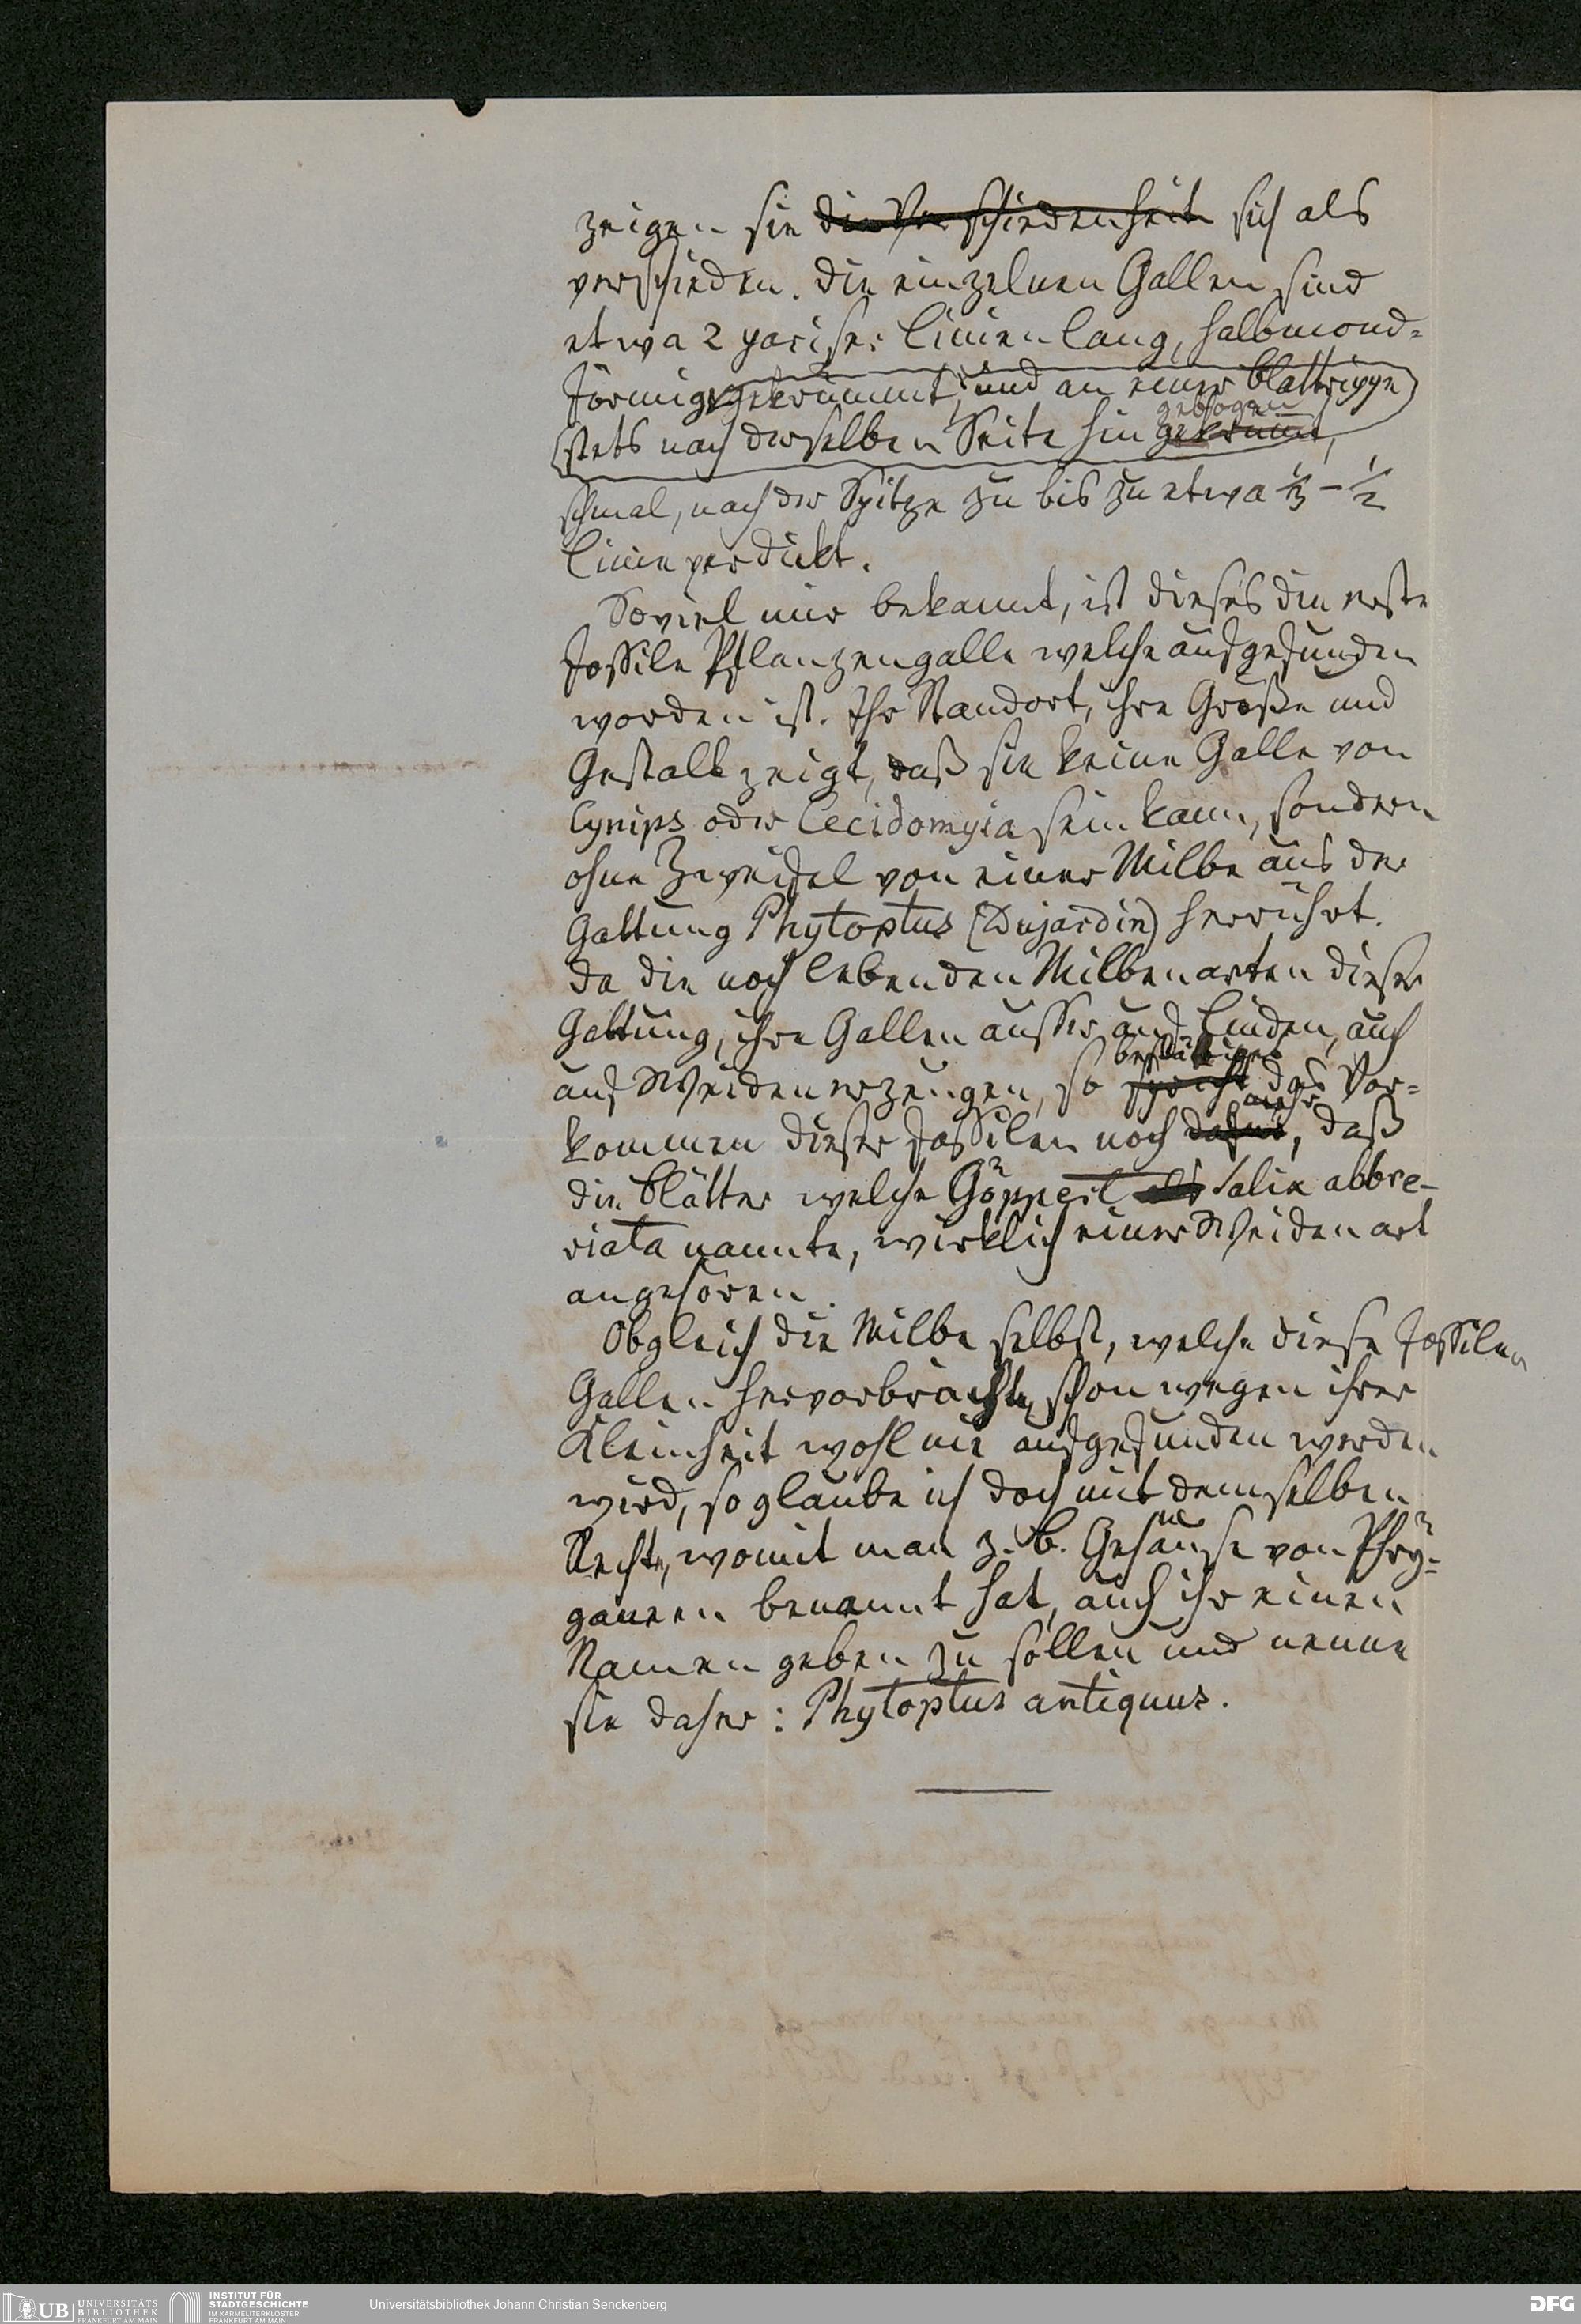 zeigen sie die Verschiedenheit sich als
verschieden. Die einzelnen Gallen sind
etwa 2 pariser Linien lang, halbmond=
förmig gekrümmt, und an einer Blattrippe
gebogen
stets nach derselben Seite hin gekrümt,
schmal, nach der Spitze zu bis zu etwa 1/3 - 1/2
Linie verdickt.
Soviel mir bekannt, ist dieses die erste
fossile Pflanzengalle welche aufgefunden
worden ist. Ihr Standort, ihre Größe und
Gestalt zeigt, daß sie keine Galle von
Cynips oder Cecidomyia sein kann, sondern
ohne Zweifel von einer Milbe aus der
Gattung Phytoptus (Dujardin) herrührt.
Da die noch lebenden Milbenarten dieser
Gattung, ihre Gallen ausser auf Linden, auch
bestättiget
auf Weiden erzeugen, so spricht das Vor=
mehr
kommen dieser fossilen noch dafür, daß
die Blätter welche Göppert als Salix abbre-
viata nannte, wirklich einer Weidenart
angehören.
Obgleich die Milbe selbst, welche diese fossilen
Gallen hervorbrachte, schon wegen ihrer
Kleinheit wohl nie aufgefunden werden
wird, so glaube ich doch mit demselben
Rechte, womit man z. B. Gehäuse von Phry=
ganeen benannt hat, auch ihr einen
Namen geben zu sollen und nenne
sie daher: Phytoptus antiquus.
UB UNIVERSITÄTS
BIBLIOTHEK
FRANKFURT AM MAIN
INSTITUT FÜR
STADTGESCHICHTE
IM KARMELITERKLOSTER
FRANKFURT AM MAIN
Universitätsbibliothek Johann Christian Senckenberg
DFG